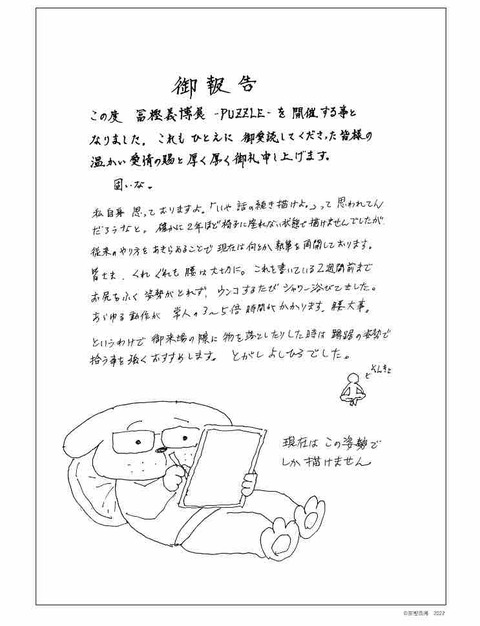 御報告
この度 冨樫義博展 -PUZZLE- を開催する事と
なりました。これもひとえに御愛読してくださった皆様の
温かい愛情の賜と厚く厚く御礼申し上げます。
固いな。
私自身思っておりますよ。「いや 話の続き描けよ。」って思われてん
だろうなと。確かに2年ほど椅子に座れない状態で描けませんでしたが
従来のやり方をあきらめることで現在は何とか執筆を再開しております。
皆さま、くれぐれも腰は大切に。これを書いている2週間前まで
お尻もふく姿勢がとれず、ウンコするたびシャワー浴びてました。
あらゆる動作が常人の3〜5倍時間がかかります。腰大事。
というわけで御来場の際に物を落としたりした時は蹲踞の姿勢で
拾う事を強くおすすめします。とがしよしひろでした。
そんきょ
現在はこの姿勢で
しか描けません
©冨樫義博 2022